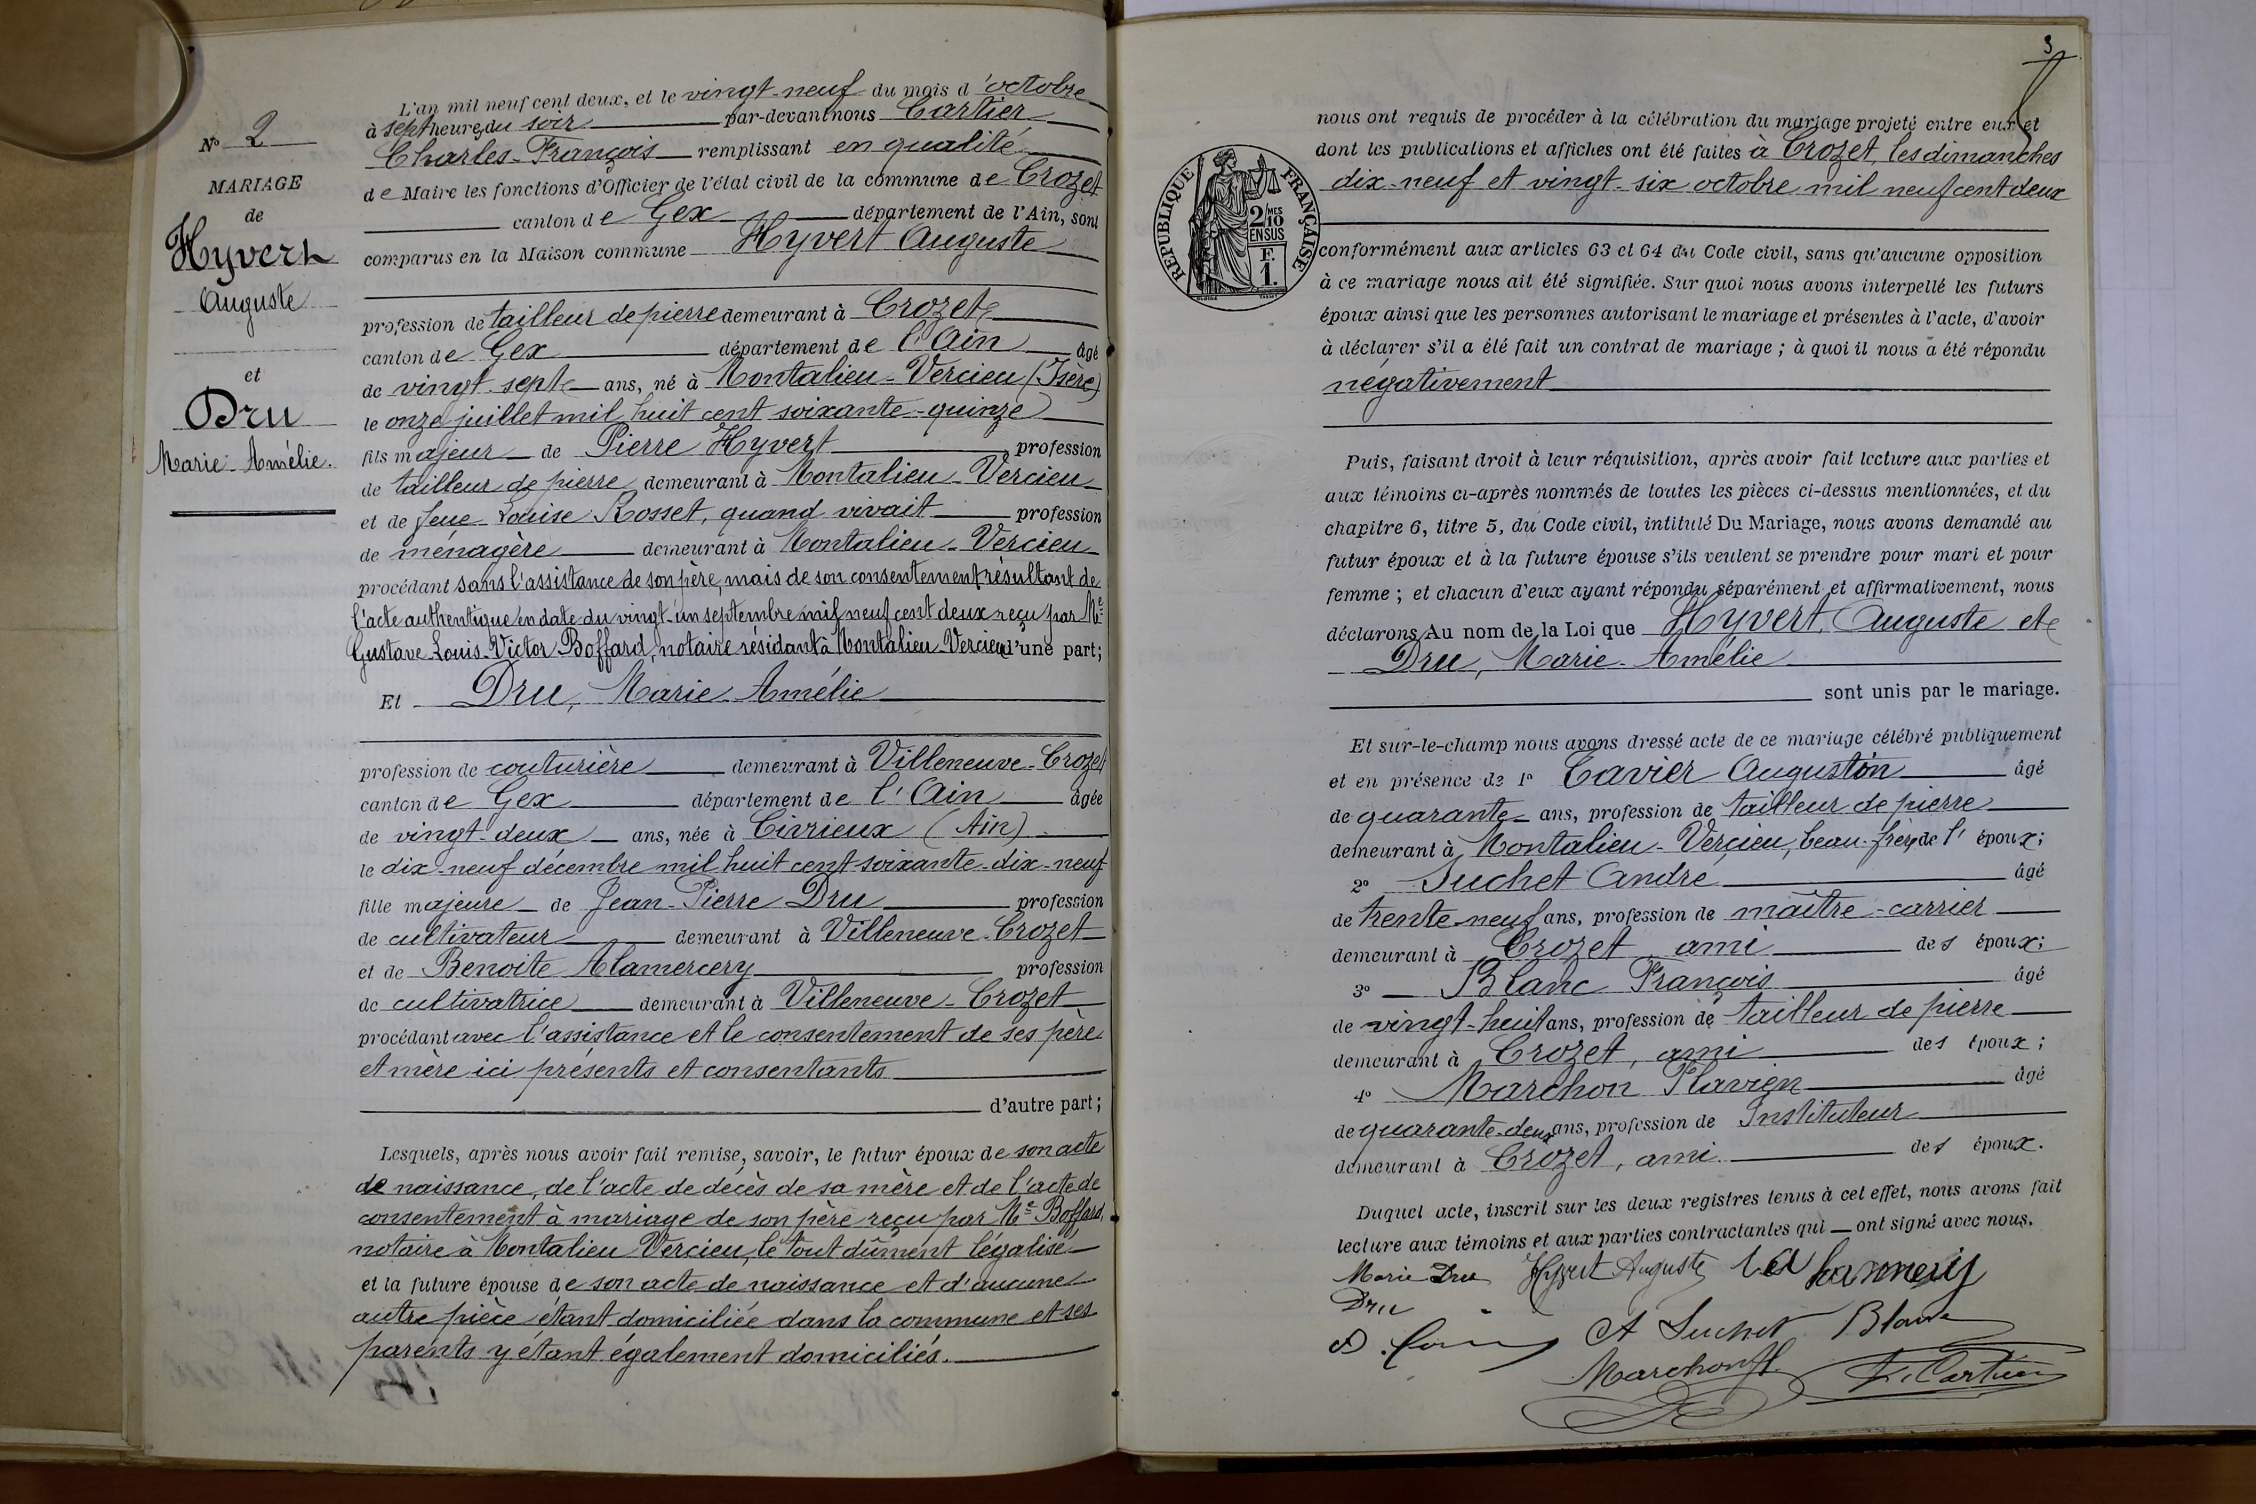 N° 2
MARIAGE
de
Hyvert
Auguste
et
Dru
Marie-Amélie.
L'an mil neuf cent deux, et le vingt-neuf du mois d'octobre
à sept heures du soir par-devant nous Cartier
Charles-François remplissant en qualité
de Maire les fonctions d'Officier de l'état civil de la commune de Crozet
canton de Gex département de l'Ain, sont
comparus en la Maison commune Hyvert Auguste
profession de tailleur de pierre demeurant à Crozet
canton de Gex département de l'Ain âgé
de vingt-sept ans, né à Montalieu-Vercieu (Isère)
le onze juillet mil huit cent soixante-quinze
fils majeur de Pierre Hyvert profession
de tailleur de pierre demeurant à Montalieu-Vercieu
et de feue Louise Rosset, quand vivait profession
de ménagère demeurant à Montalieu-Vercieu
procédant sans l'assistance de son père, mais de son consentement résultant de
l'acte authentique en date du vingt-un septembre mil neuf cent deux reçu par Me
Gustave-Louis-Victor Boffard, notaire résidant à Montalieu-Vercieu d'une part;
Et Dru, Marie-Amélie
profession de couturière demeurant à Villeneuve-Crozet
canton de Gex département de l'Ain âgée
de vingt-deux ans, née à Civrieux (Ain)
le dix-neuf décembre mil huit cent soixante-dix-neuf
fille majeure de Jean-Pierre Dru profession
de cultivateur demeurant à Villeneuve-Crozet
et de Benoite Alamercery profession
de cultivatrice demeurant à Villeneuve-Crozet
procédant avec l'assistance et le consentement de ses père
et mère ici présents et consentants
d'autre part;
Lesquels, après nous avoir fait remise, savoir, le futur époux de son acte
de naissance, de l'acte de décès de sa mère et de l'acte de
consentement à mariage de son père reçu par Me Boffard,
notaire à Montalieu-Vercieu, le tout dûment légalisé
et la future épouse de son acte de naissance et d'aucune
autre pièce étant domiciliée dans la commune et ses
parents y étant également domiciliés.
3
RÉPUBLIQUE FRANÇAISE
2/MES
10
EN SUS
F.
1.
nous ont requis de procéder à la célébration du mariage projeté entre eux et
dont les publications et affiches ont été faites à Crozet, les dimanches
dix-neuf et vingt-six octobre mil neuf cent deux
conformément aux articles 63 et 64 du Code civil, sans qu'aucune opposition
à ce mariage nous ait été signifiée. Sur quoi nous avons interpellé les futurs
époux ainsi que les personnes autorisant le mariage et présentes à l'acte, d'avoir
à déclarer s'il a été fait un contrat de mariage; à quoi il nous a été répondu
négativement
Puis, faisant droit à leur réquisition, après avoir fait lecture aux parties et
aux témoins ci-après nommés de toutes les pièces ci-dessus mentionnées, et du
chapitre 6, titre 5, du Code civil, intitulé Du Mariage, nous avons demandé au
futur époux et à la future épouse s'ils veulent se prendre pour mari et pour
femme; et chacun d'eux ayant répondu séparément et affirmativement, nous
déclarons Au nom de la Loi que Hyvert, Auguste et
Dru, Marie-Amélie
sont unis par le mariage.
Et sur-le-champ nous avons dressé acte de ce mariage célébré publiquement
et en présence de 1° Cavier Augustin âgé
de quarante ans, profession de tailleur de pierre
demeurant à Montalieu-Vercieu, beau-frère de l'époux;
2° Suchet André âgé
de trente-neuf ans, profession de maître-carrier
demeurant à Crozet ami des époux;
3° Blanc François âgé
de vingt-huit ans, profession de tailleur de pierre
demeurant à Crozet, ami des époux;
4° Marchon Flavien âgé
de quarante-deux ans, profession de Instituteur
demeurant à Crozet, ami des époux.
Duquel acte, inscrit sur les deux registres tenus à cet effet, nous avons fait
lecture aux témoins et aux parties contractantes qui ont signé avec nous.
Marie Dru Hyvert Auguste
Dru
A Suchet Blanc
Marchon fl. Cartier